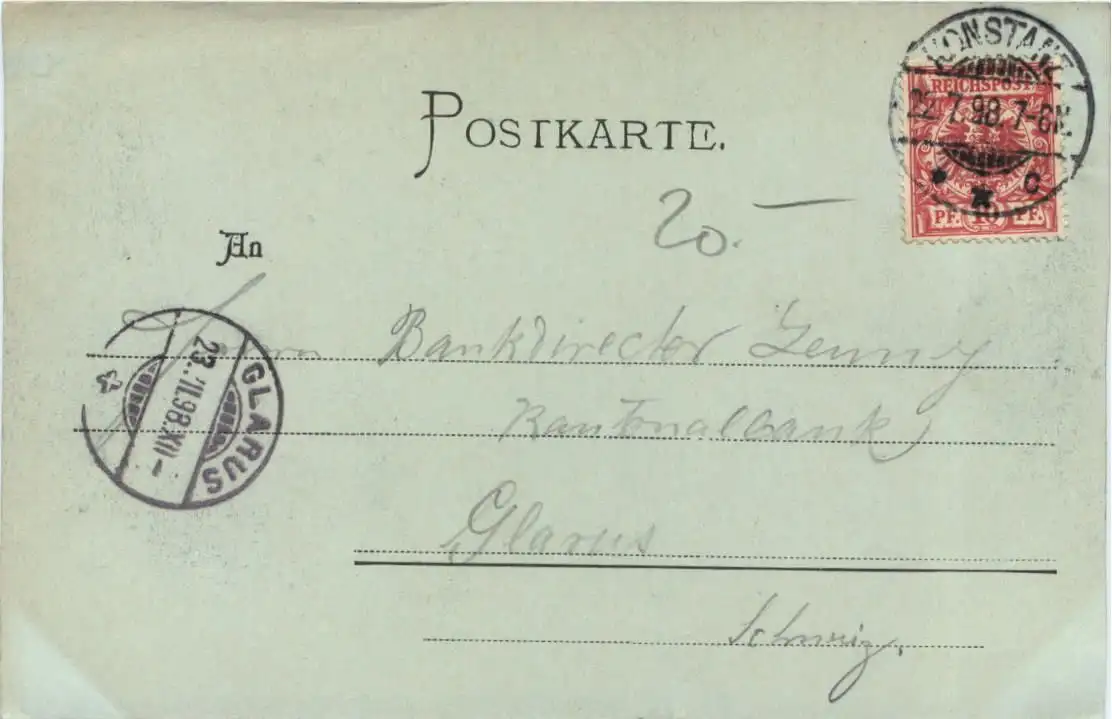 KONSTANZ
REICHSPOST
22.7.98.7-8N.
* C
PF. 10 PF.
POSTKARTE.
20.—
An
Herrn Bankdirector Jenny
Kantonalbank
Glarus
Schweiz.
GLARUS
23.VII.98.XII-